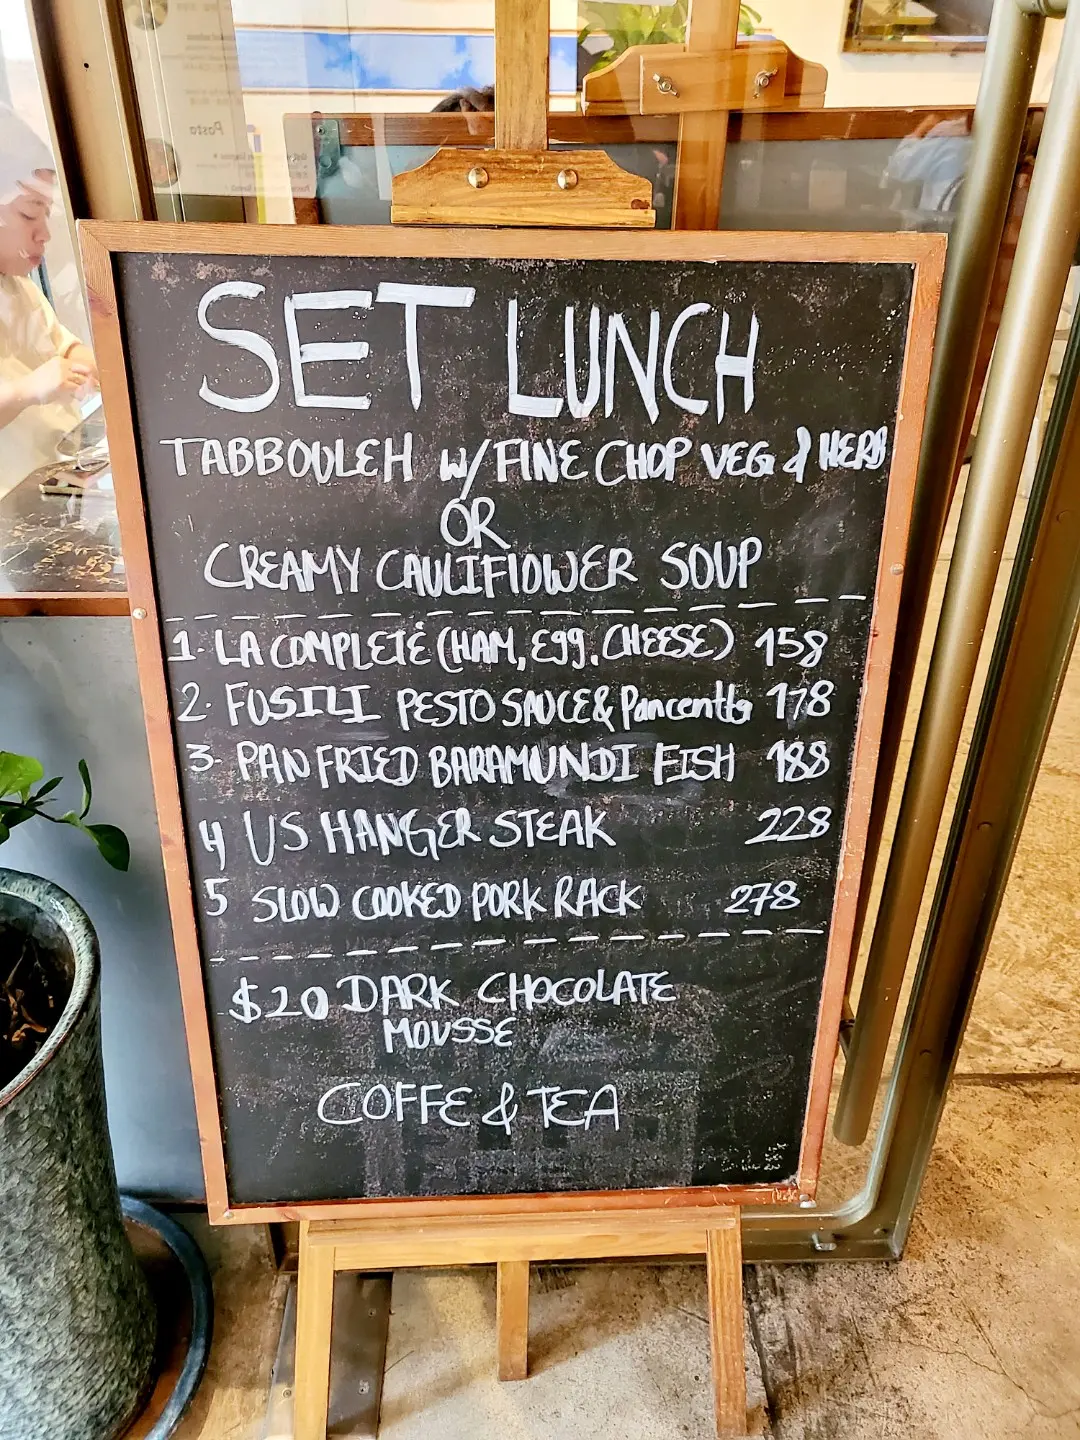 Pasta
SET LUNCH
TABBOULEH W/ FINE CHOP VEG & HERB
OR
CREAMY CAULIFLOWER SOUP
1. LA COMPLETÉ (HAM, Egg, CHEESE) 158
2. FUSILI PESTO SAUCE & Pancentta 178
3. PAN FRIED BARAMUNDI FISH 188
4 US HANGER STEAK 228
5 SLOW COOKED PORK RACK 278
$20 DARK CHOCOLATE
MOUSSE
COFFE & TEA